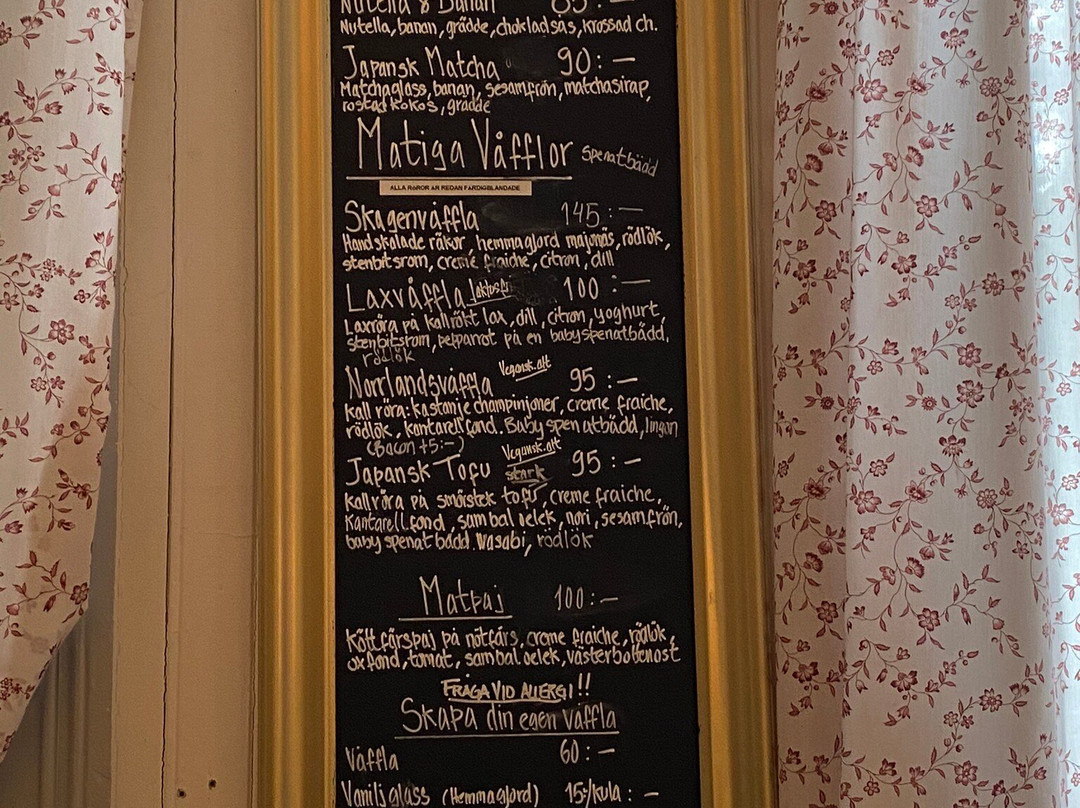 Nutella & Banan 85:-
Nutella, banan, grädde, choklad sås, krossad ch.
Japansk Matcha 90:-
Matchaglass, banan, sesamfrön, matchasirap,
rostad kokos, grädde
Matiga Våfflor spenatbädd
ALLA RÖROR ÄR REDAN FÄRDIGBLANDADE
Skagenvåffla 145:-
Handskalade räkor, hemmagjord majonäs, rödlök,
stenbitsrom, creme fraiche, citron, dill
Laxvåffla 100:-
Laxröra på kallrökt lax, dill, citron, yoghurt,
stenbitsrom, pepparrot på en babyspenatbädd,
rödlök
Norrlandsvåffla Vegansk.alt 95:-
kall röra: kastanje champinjoner, creme fraiche,
rödlök, kantarell fond. Baby spenatbädd, lingon
(Bacon +5:-)
Japansk Tofu Vegansk.alt stark 95:-
kallröra på smörstek tofu, creme fraiche,
kantarell fond, sambal oelek, nori, sesamfrön,
baby spenatbädd. wasabi, rödlök
Matpaj 100:-
Köttfärspaj på nötfärs, creme fraiche, rödlök,
oxfond, tomat, sambal oelek, västerbottenost
FRÅGA VID ALLERGI!!
Skapa din egen våffla
Våffla 60:-
Vaniljglass (Hemmagjord) 15:-/kula:-